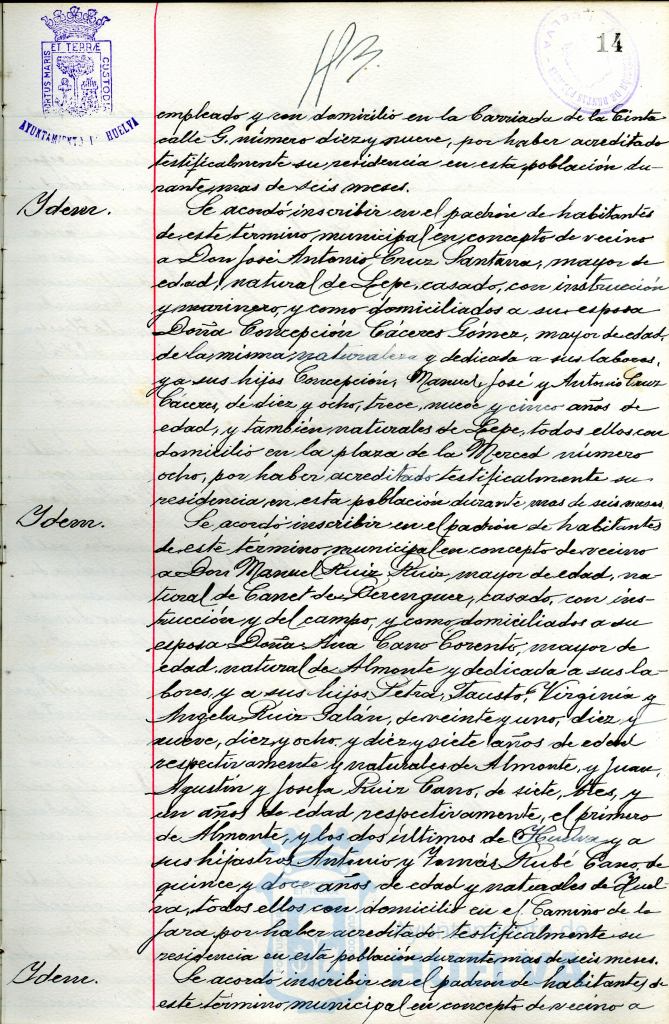 PORTUS MARIS ET TERRÆ CUSTODIA
AYUNTAMIENTO DE HUELVA
14
empleado y con domicilio en la Barriada de la Cinta
calle G, número diez y nueve, por haber acreditado
testificalmente su residencia en esta población du-
rante mas de seis meses.
Idem.
Se acordó inscribir en el padrón de habitantes
de este término municipal en concepto de vecino
a Don José Antonio Cruz Santana, mayor de
edad, natural de Lepe, casado, con instrucción
y marinero, y como domiciliados a su esposa
Doña Concepción Cáceres Gómez, mayor de edad,
de la misma naturaleza y dedicada a sus labores,
y a sus hijos Concepción, Manuel, José y Antonio Cruz
Cáceres, de diez y ocho, trece, nueve y cinco años de
edad, y también naturales de Lepe, todos ellos con
domicilio en la plaza de la Merced número
ocho, por haber acreditado testificalmente su
residencia en esta población durante mas de seis meses.
Idem.
Se acordó inscribir en el padrón de habitantes
de este término municipal en concepto de vecino
a Don Manuel Ruiz Ruiz, mayor de edad, na-
tural de Canet de Berenguer, casado, con ins-
trucción y del campo, y como domiciliados a su
esposa Doña Ana Cano Lorento, mayor de
edad, natural de Almonte y dedicada a sus la-
bores, y a sus hijos Petra, Fausto, Virginia y
Angela Ruiz Galán, de veinte y uno, diez y
nueve, diez y ocho y diez y siete años de edad
respectivamente y naturales de Almonte, y Juan,
Agustín y Josefa Ruiz Cano, de siete, tres, y
un años de edad respectivamente, el primero
de Almonte, y los dos últimos de Huelva y a
sus hijastros Antonio y Tomás Rubé Cano, de
quince y doce años de edad y naturales de Huel-
va, todos ellos con domicilio en el Camino de la
Jara por haber acreditado testificalmente su
residencia en esta población durante mas de seis meses.
Idem.
Se acordó inscribir en el padrón de habitantes de
este término municipal en concepto de vecino a
HUELVA